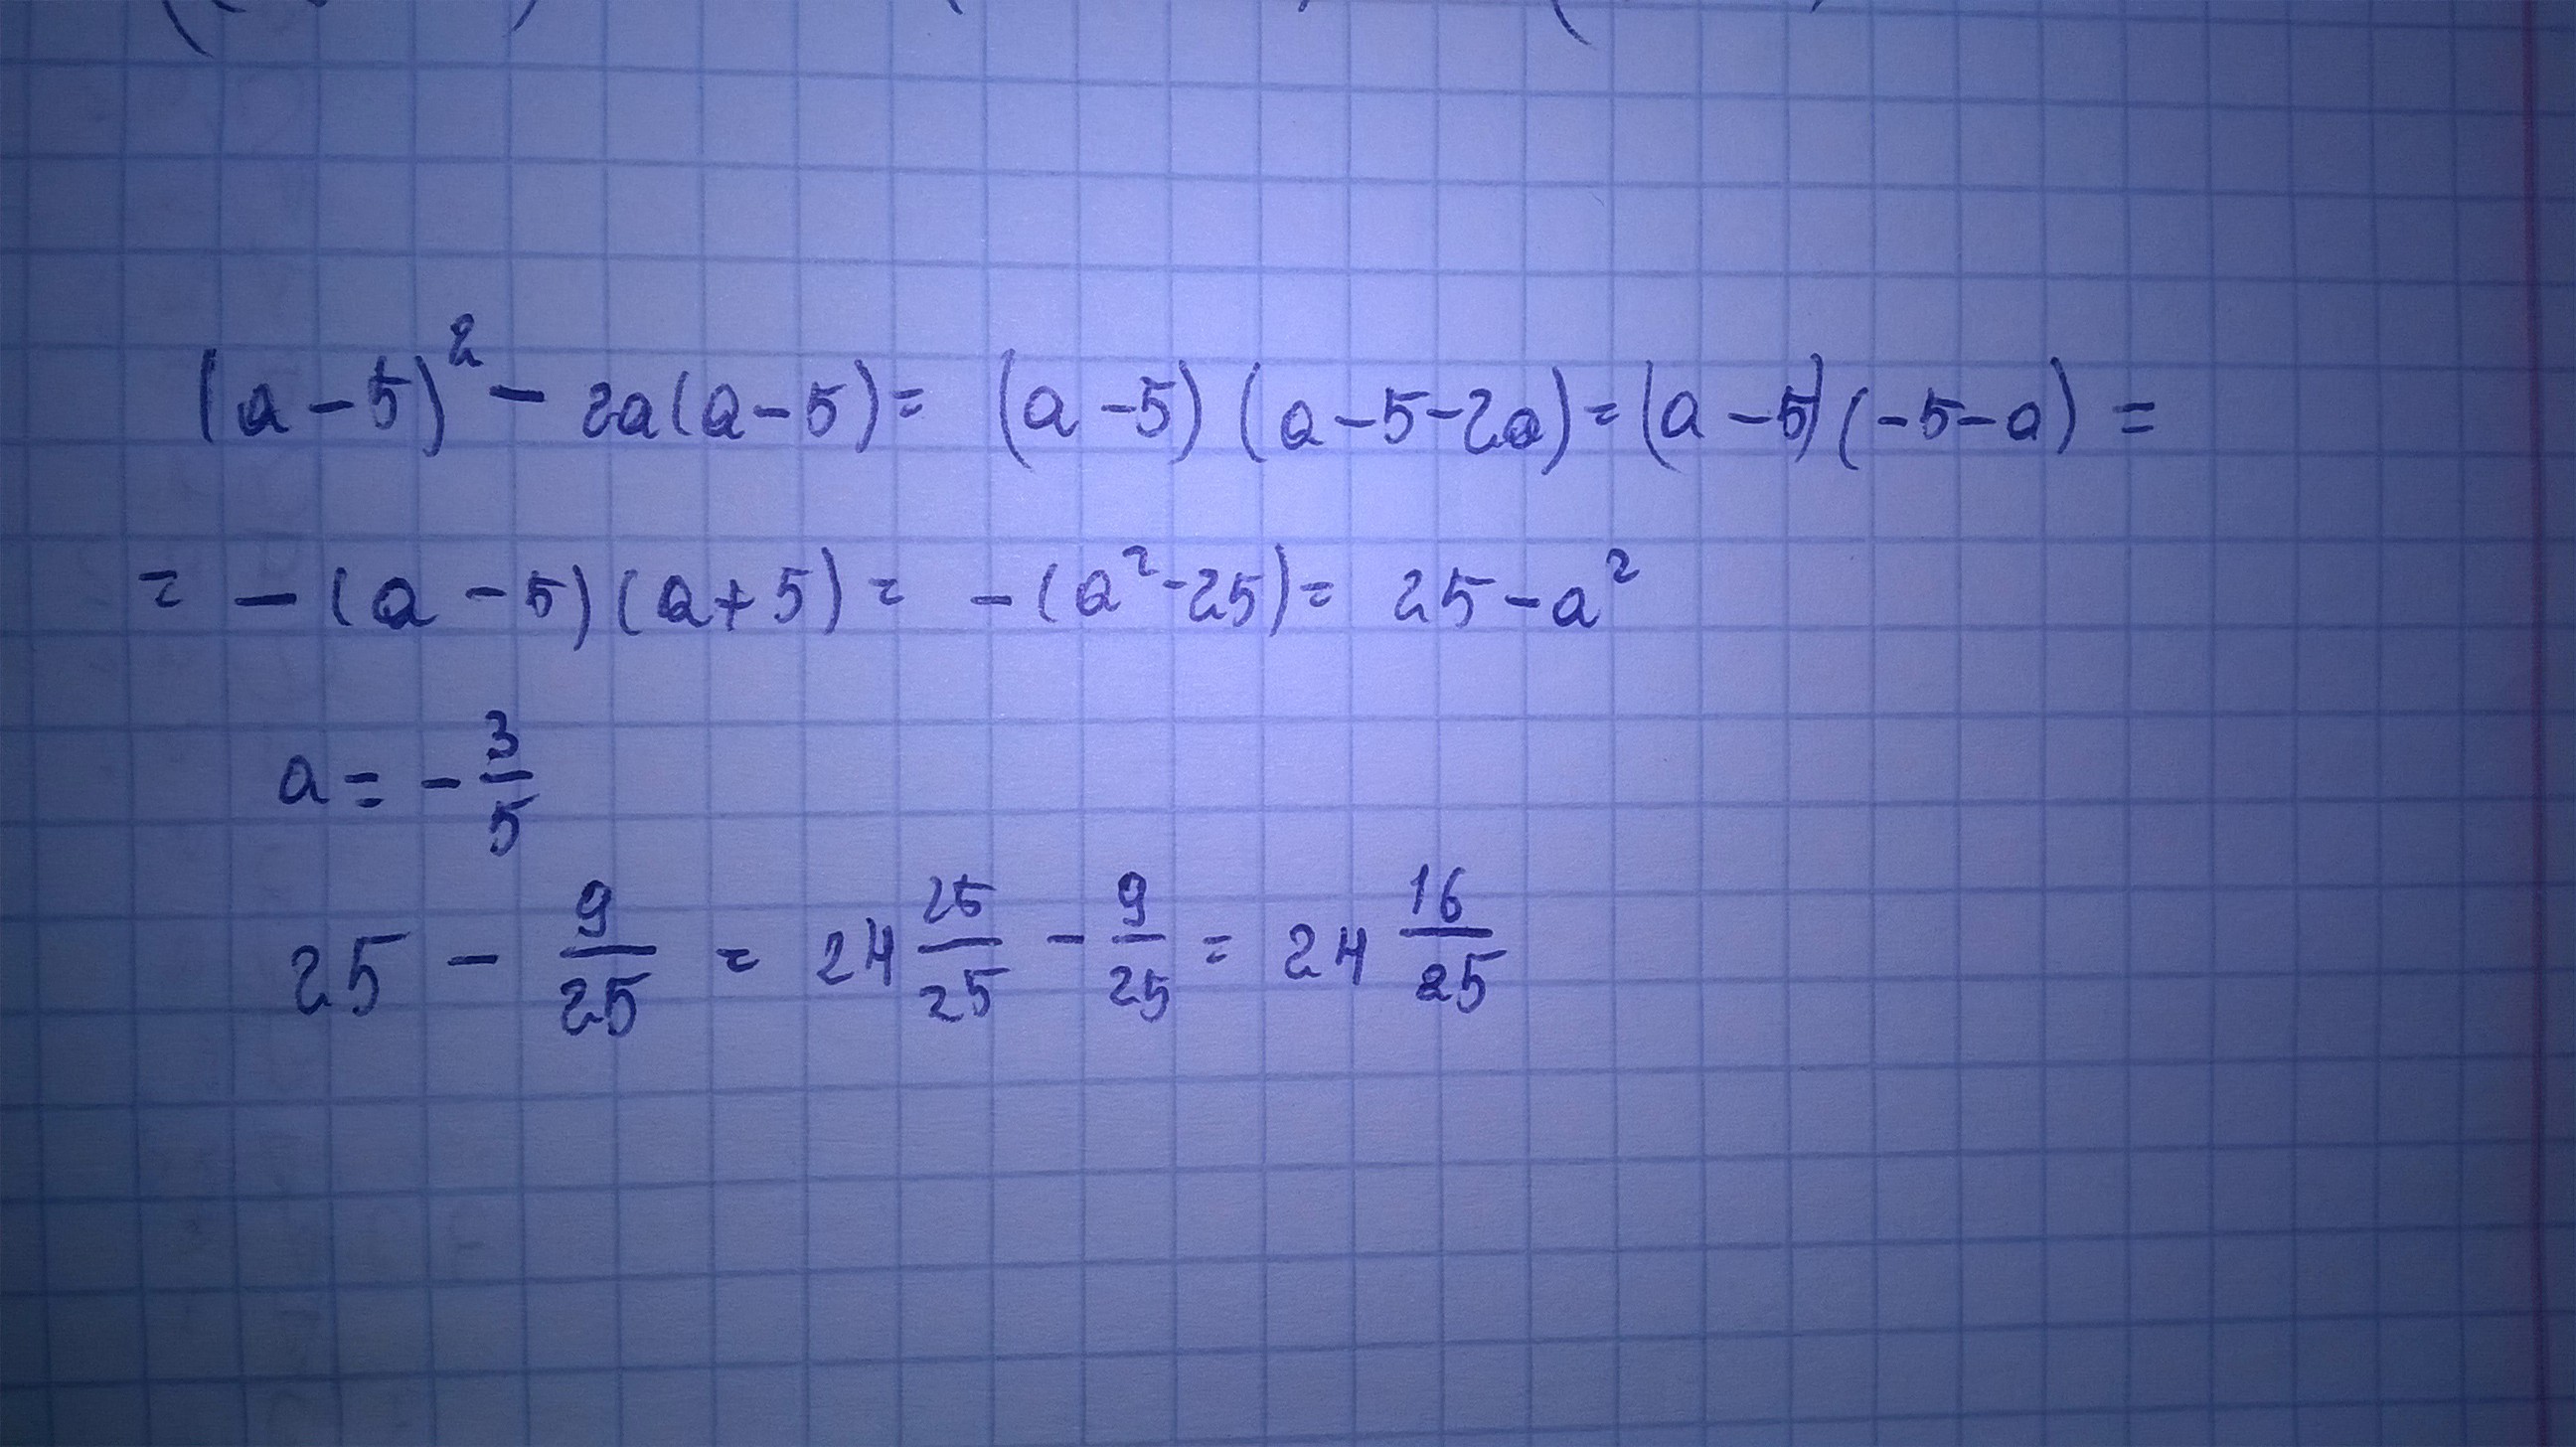 (a-5)² - 2a(a-5) = (a-5)(a-5-2a) = (a-5)(-5-a) =
= -(a-5)(a+5) = -(a²-25) = 25-a²
a = -3/5
25 - 9/25 = 24 25/25 - 9/25 = 24 16/25